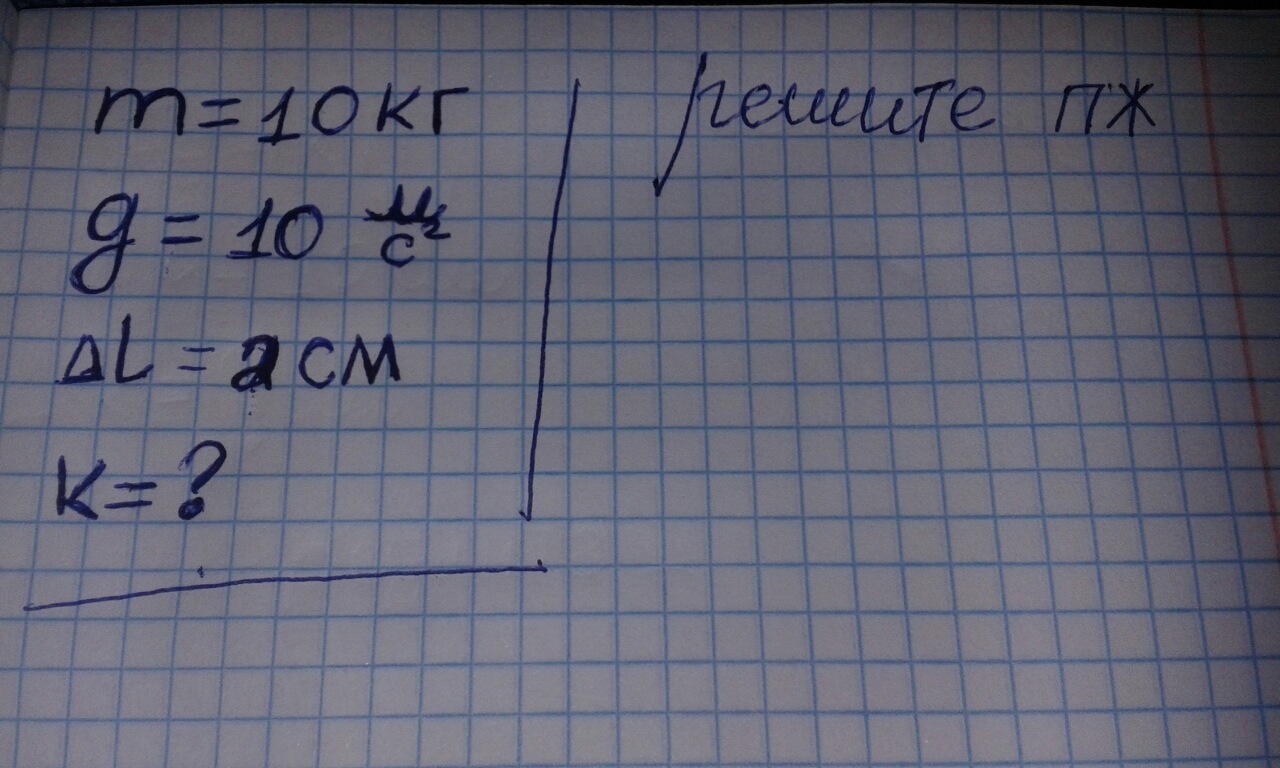 m = 10 кг
g = 10 м/с²
ΔL = 2 см
K = ?
решите пж